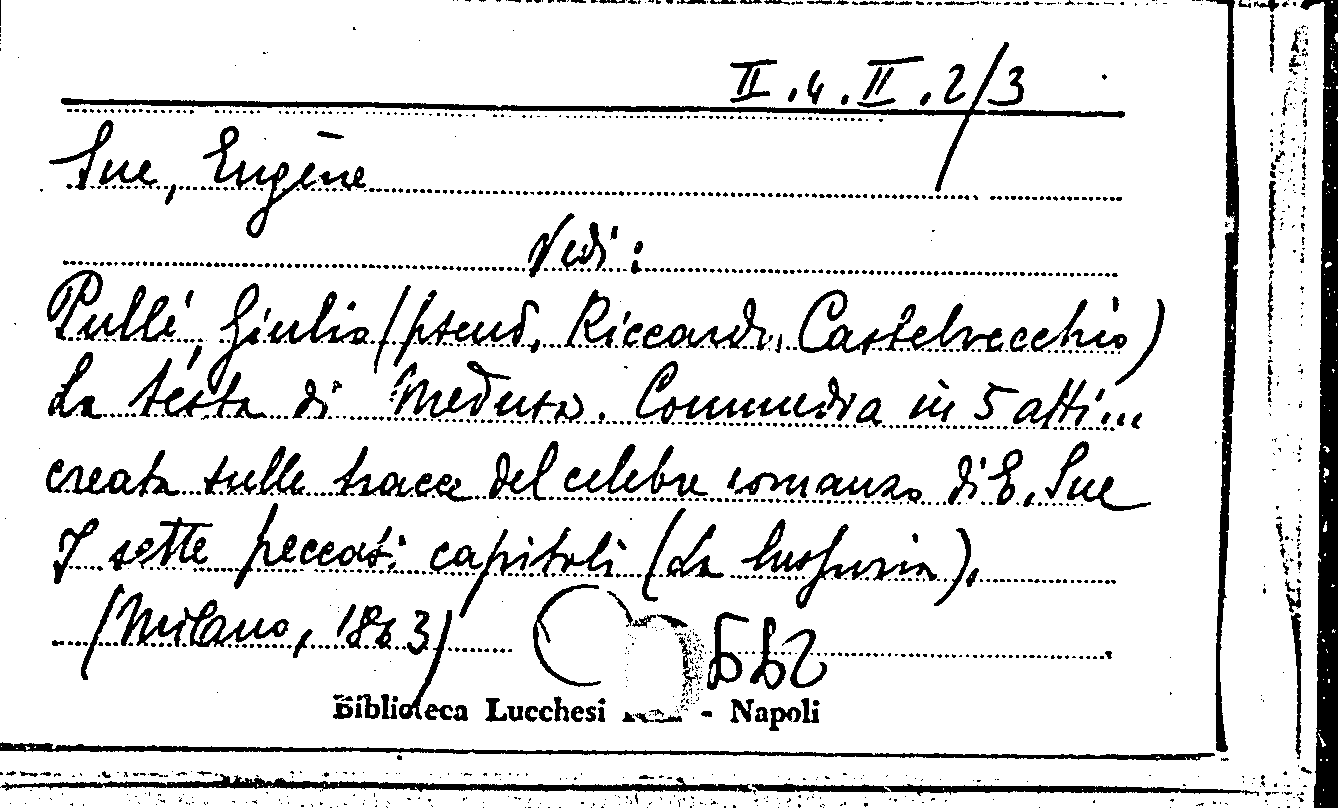 II.4.II.2/3
Sue, Eugène
Vedi:
Pullé, Giulio (pseud. Riccardo Castelvecchio)
La testa di Medusa. Commedia in 5 atti...
creata sulle tracce del celebre romanzo di E. Sue
I sette peccati capitali (La lussuria).
(Milano, 1863)
Biblioteca Lucchesi - Napoli